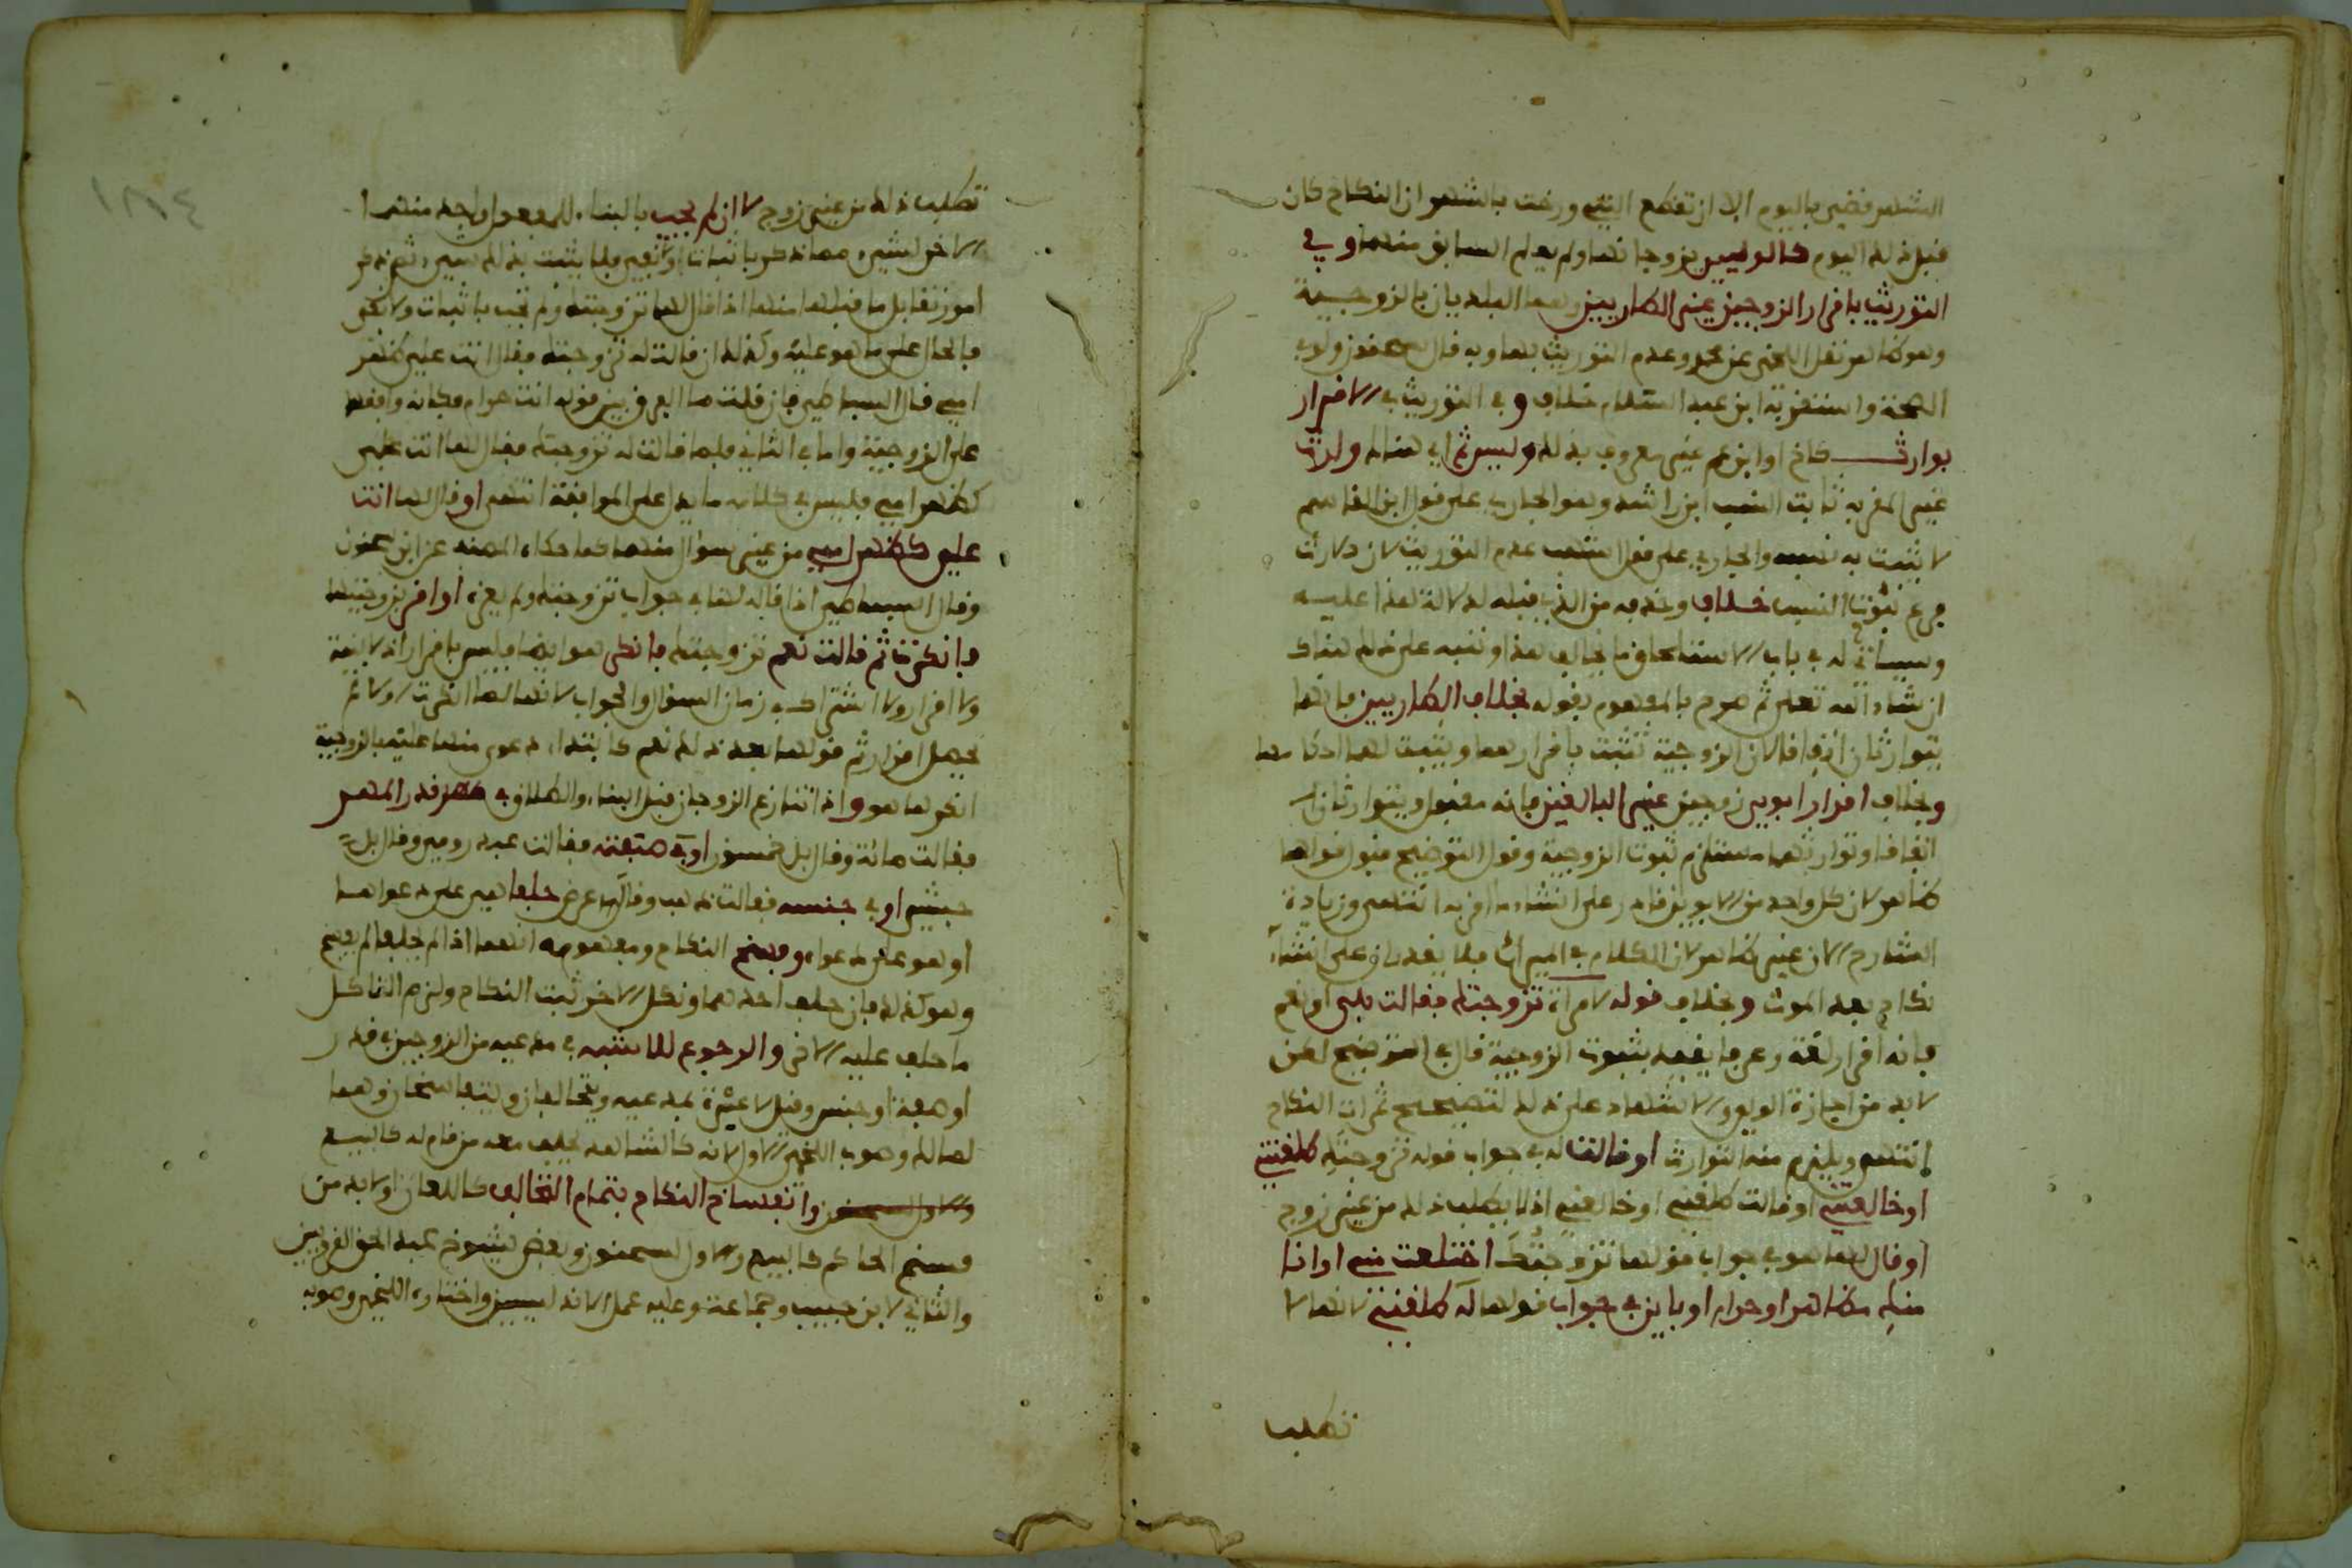 الشهر قضي باليوم الا ان تقطع البينة ورخت بالشهر ان النكاح كان
قبل ذلك اليوم كالوليين يزوجانها ولم يعلم السابق منهما وفي
التوريث باقرار الزوجين غير الطاريين وهما البلديان بالزوجية
وهو ظاهر نقل اللخمي عن محمد وعدم التوريث بها وبه قال سحنون ولو في
الصحة واستقربه ابن عبد السلام خلاف وفي التوريث في الاقرار
بوارث كاخ او ابن عم غير معروف بذلك وليس ثم اي هناك وارث
غير المقر به ثابت النسب ابن راشد وهو الجاري على قول ابن القاسم
لا يثبت به نسب والجاري على قول اشهب عدم التوريث لان الارث
فرع ثبوت النسب خلاف وحذفه من الذي قبله لدلالة هذا عليه
وسيأتي له في باب الاستلحاق ما يخالف هذا وننبه على ذلك هناك
ان شاء الله تعلى ثم صرح بالمفهوم بقوله بخلاف الطاريين فانهما
يتوارثان اتفاقا لان الزوجية تثبت باقرارهما ويثبت لهما احكامها
وبخلاف اقرار ابوي زوجين غير البالغين فانه مقبول ويتوارثان
اتفاقا وتوارثهما مستلزم ثبوت الزوجية وقول التوضيح قبول قولهما
ظاهر لان كل واحد من الابوين قادر على انشاء ما اقر به انتهى وزيادة
الشارح الان غير ظاهر لان الكلام في الميراث فلا يقدران على انشاء
نكاح بعد الموت وبخلاف قوله لامراة تزوجتك فقالت بلى او نعم
فانه اقرار لغة وعرفا يفيد بثبوت الزوجية قال في التوضيح لكن
لا بد من اجازة الولي والاشهاد على ذلك لتصحيح ثمرات النكاح
انتهى ويلزم منه التوارث او قالت له في جواب قوله تزوجتك طلقتني
او خالعتني او قالت طلقني او خالعني اذ لا يطلب ذلك من غير زوج
او قال لها هو في جواب قولها تزوجتك اختلعت مني او انا
منك مظاهر او حرام او باين في جواب قولها له طلقني لانها لا
تطلب
١٨٤
تطلب ذلك من غير زوج لا ان لم يجب بالبناء للمفعول واحد منهما
الاخر لشيء مما ذكر باثبات او نفي فلا يثبت بذلك شيء ثم ذكر
امورا تقابل ما قبلها منها اذا قال لها تزوجتك ولم تجب باثبات ولا نفي
فالحال على ما هو عليه وكذلك ان قالت له تزوجتك فقال انت علي كظهر
امي قال البساطي فان قلت ما الفرق بين قوله انت حرام فكانه وافقها
على الزوجية واما في الثاني فلما قالت له تزوجتك فقال لها انت علي
كظهر امي فليس في كلامه ما يدل على الموافقة انتهى او قال لها انت
علي كظهر امي من غير سؤال منها كما حكاه المصنف عن ابن سحنون
وقال البساطي اذا قاله لها في جواب تزوجتك ولم يعزه او اقر بزوجيتها
فانكرت ثم قالت نعم تزوجتك فانكر هو ايضا فليس باقرار اذ لا بينة
ولا اقرار ولا اشتراك في زمان السؤال والجواب لانها لما انكرت اولا لم
يحصل اقرار ثم قولها بعد ذلك نعم كابتداء دعوى منها عليه بالزوجية
انكرها هو واذا تنازع الزوجان قبل البناء والطلاق في قدر المهر
فقالت مائة وقال بل خمسون او في صفته فقالت عبد رومي وقال بل
حبشي او في جنسه فقالت ذهب وقال عرض حلفا هي على دعواها
او هو على دعواه وفسخ النكاح ومفهومه انهما اذا لم يحلفا لم يفسخ
وهو كذلك فان حلف احدهما ونكل الاخر ثبت النكاح ولزم الناكل
ما حلف عليه الاخر والرجوع للاشبه في مدعيه من الزوجين في قدر
او صفة او جنس وقيل لا عبرة بمدعيه ويتحالفان ويتفاسخان وهما
لمالك وصوب اللخمي الاول لانه كالشاهد يحلف معه من قام له كالبيع
وانفساخ النكاح بتمام التحالف كاللعان او لا بد من
فسخ الحاكم كالبيع والاول لسحنون وبعض شيوخ عبد الحق القرويين
والثاني لابن حبيب وجماعة وعليه عمل الاندلسيين واختاره اللخمي وصوبه